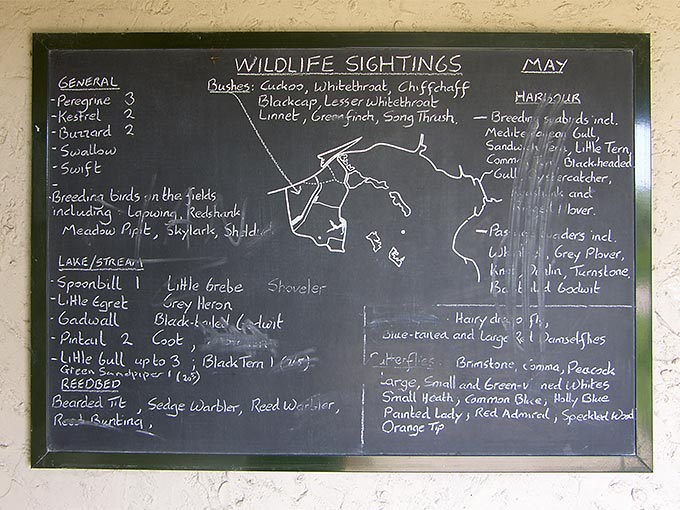 WILDLIFE SIGHTINGS
MAY
GENERAL
- Peregrine 3
- Kestrel 2
- Buzzard 2
- Swallow
- Swift
-
- Breeding birds on the fields
including Lapwing, Redshank,
Meadow Pipit, Skylark,
Bushes: Cuckoo, Whitethroat, Chiffchaff
Blackcap, Lesser Whitethroat
Linnet, Greenfinch, Song Thrush.
HARBOUR
- Breeding seabirds incl.
Mediterranean Gull,
Sandwich Tern, Little Tern,
Common Black-headed
Gull, Oystercatcher,
and
Plover.
- Passage waders incl.
Grey Plover,
Knot, Dunlin, Turnstone,
Bar-tailed Godwit
LAKE/STREAM
- Spoonbill 1 Little Grebe Shoveler
- Little Egret Grey Heron
- Gadwall Black-tailed Godwit
- Pintail 2 Coot,
- Little Gull up to 3, Black Tern 1
Green Sandpiper 1
REEDBED
Bearded Tit, Sedge Warbler, Reed Warbler,
Reed Bunting,
Hairy dragonfly,
Blue-tailed and Large Red Damselflies
Butterflies: Brimstone, Comma, Peacock
Large, Small and Green-veined Whites
Small Heath, Common Blue, Holly Blue
Painted Lady, Red Admiral, Speckled Wood
Orange Tip